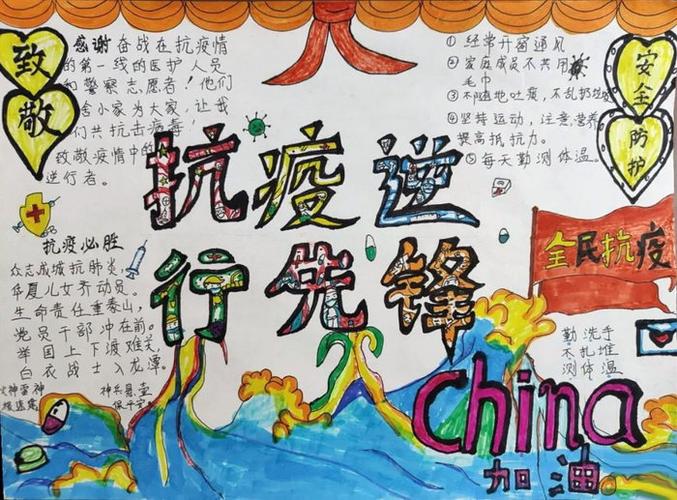 致敬
感谢奋战在抗疫情
的第一线的医护人员
和警察志愿者！他们
舍小家为大家，让我
们共抗击病毒！
致敬疫情中的
逆行者。
①经常开窗通风
②家庭成员不共用
毛巾
③不随地吐痰，不乱扔垃圾
④坚持运动，注意营养
提高抵抗力。
⑤每天勤测体温。
安全
防护
抗疫逆
行先锋
抗疫必胜
众志成城抗肺炎，
华夏儿女齐动员。
生命责任重泰山，
党员干部冲在前。
举国上下渡难关，
白衣战士入龙潭。
火神雷神
神兵悬壶
保平
全民抗疫
勤洗手
不扎堆
测体温
China
加油